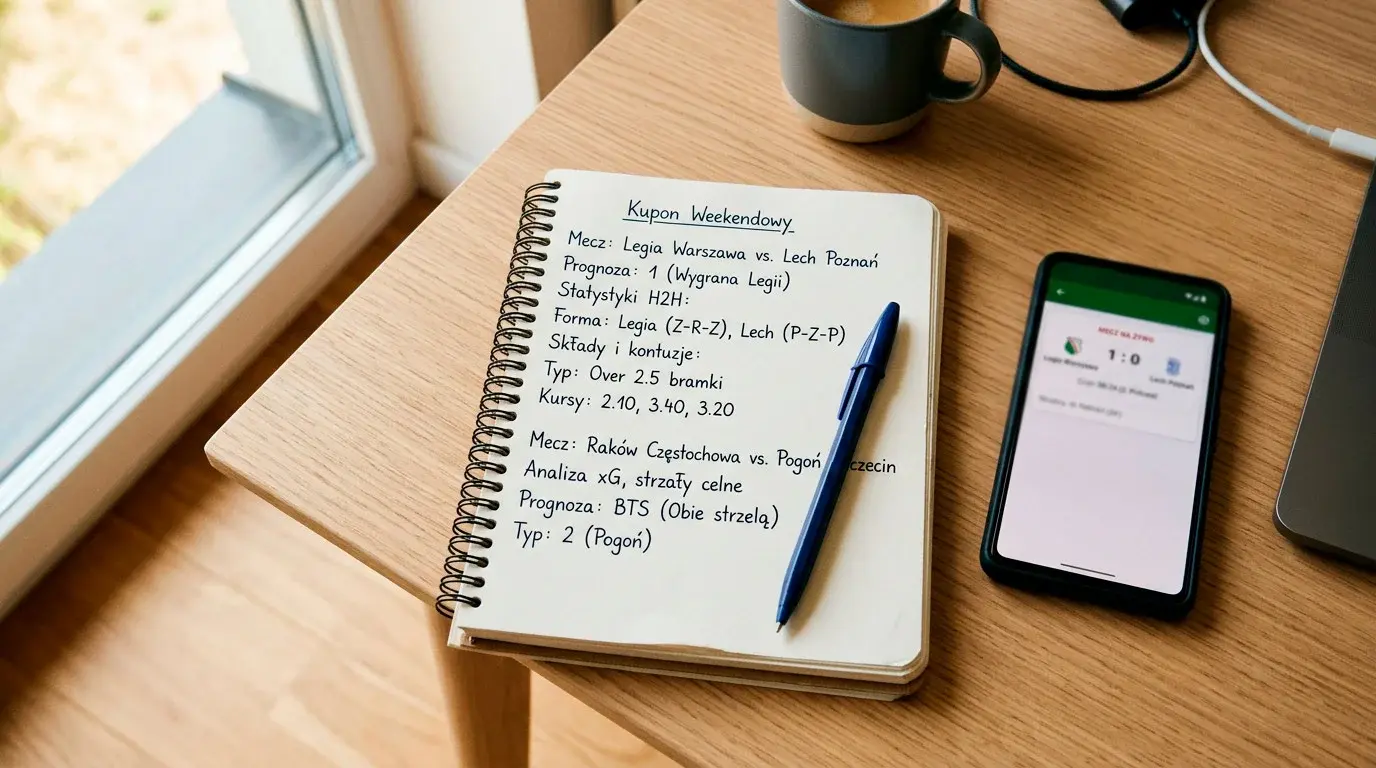 Kupon Weekendowy
Mecz: Legia Warszawa vs. Lech Poznań
Prognoza: 1 (Wygrana Legii)
Statystyki H2H:
Forma: Legia (Z-R-Z), Lech (P-Z-P)
Składy i kontuzje:
Typ: Over 2.5 bramki
Kursy: 2.10, 3.40, 3.20
Mecz: Raków Częstochowa vs. Pogoń czecin
Analiza xG, strzały celne
Prognoza: BTS (Obie strzelą)
Typ: 2 (Pogoń)
MECZ NA ŻYWO
1:0
Legia Warszawa
Lech Poznań